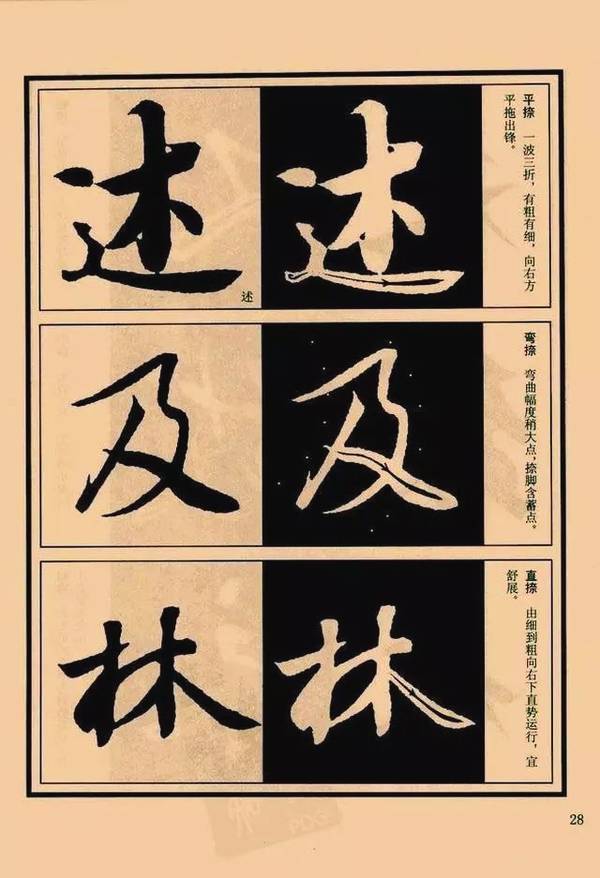 平捺　一波三折，有粗有细，向右方
平拖出锋。
述
述
述
弯捺　弯曲幅度稍大点，捺脚含蓄点。
及
及
直捺　由细到粗向右下直势运行，宜
舒展。
林
林
28
PDG